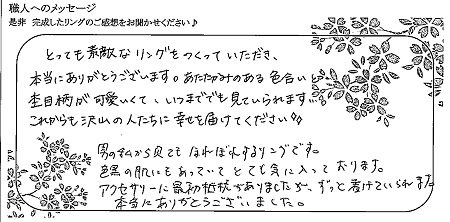 職人へのメッセージ
是非 完成したリングのご感想をお聞かせください♪
とっても素敵なリングをつくっていただき、
本当にありがとうございます。あたたかみのある色合いと
杢目柄が可愛いくて、いつまででも見ていられます…
これからも沢山の人たちに幸せを届けてください!!
男の私から見てもほれぼれするリングです。
色黒の肌にもあっていてとても気に入っております。
アクセサリーに最初抵抗がありましたが、ずっと着けていられます。
本当にありがとうございました。